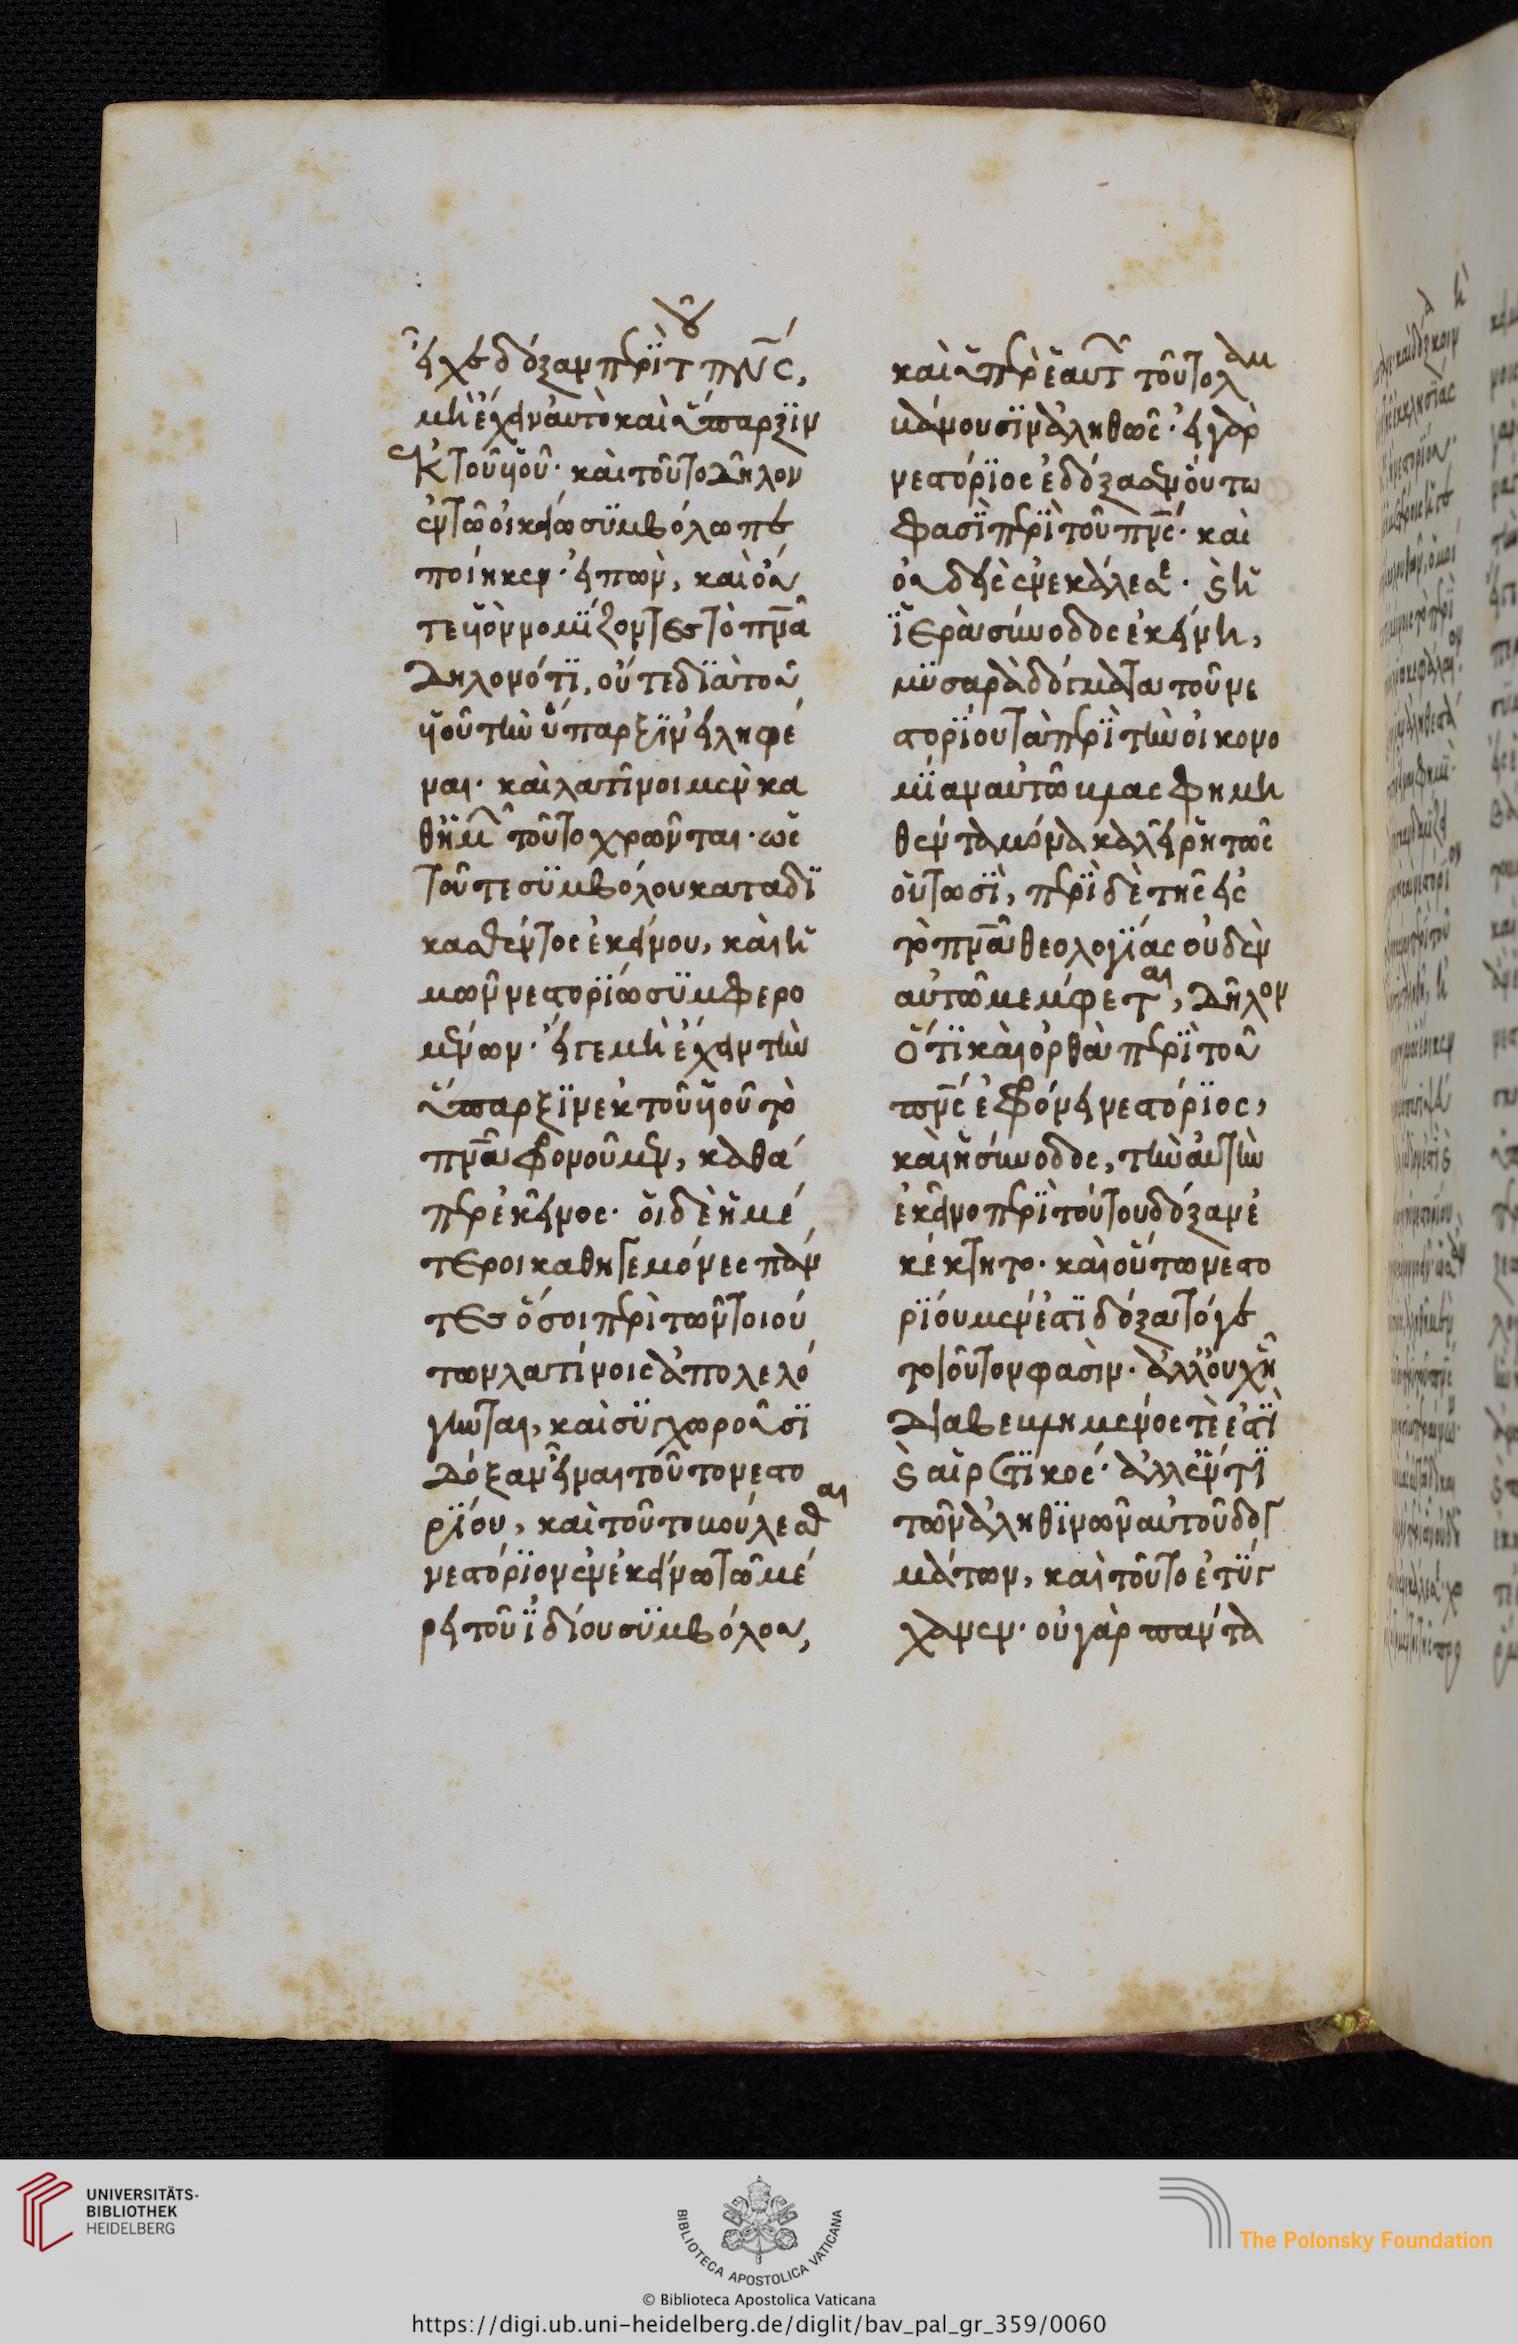 εἶχε δόξαν περὶ τοῦ πνς,
μὴ ἔχειν αὐτὸ καὶ ὕπαρξιν
ἐκ τοῦ υἱοῦ· καὶ τοῦτο δῆλον
ἐν τῷ οἰκείῳ συμβόλῳ πε
ποίηκεν· εἰπὼν, καὶ οὔ
τε υἱὸν νομίζοντες τὸ πνα
δηλονότι, οὔτε διὰ τοῦ
υἱοῦ τὴν ὕπαρξιν εἰληφέ
ναι· καὶ λατῖνοι μὲν κα
θ' ἡμῶν τοῦτο χρῶνται· ὡς
τοῦ τε συμβόλου καταδι
κασθέντος ἐκείνου, καὶ ἡ
μῶν νεστορίῳ συμφερο
μένων· εἴγε μὴ ἔχειν τὴν
ὕπαρξιν ἐκ τοῦ υἱοῦ τὸ
πνα φρονοῦμεν, καθά
περ ἐκεῖνος· οἱ δὲ ἡμέ
τεροι καθηγεμόνες πάν
τες ὅσοι περὶ τῶν τοιού
των λατίνοις ἀπολελό
γηνται, καὶ συγχωροῦσι
δόξαν εἶναι τοῦτο νεστο
ρίου, καὶ τοῦτο βούλεσθαι
νεστόριον ἐν ἐκείνῳ τῷ μέ
ρει τοῦ ἰδίου συμβόλου,
καὶ ὑπὲρ ἑαυτῶν τοῦτο λαμ
βάνουσιν ἀληθῶς· εἰ γὰρ
νεστόριος ἐδόξασεν οὕτω
φασὶ περὶ τοῦ πνς· καὶ
οὐδεὶς ἐνεκάλεσε· οὐδ' ἡ
ἱερὰ σύνοδος ἐκείνη,
μυσαρὰ δόγματα τοῦ νε
στορίου τὰ περὶ τὴν οἰκονο
μίαν αὐτῷ βλασφημη
θέντα μόνα καλεῖ ῥητῶς
οὑτωσὶ, περὶ δὲ τῆς εἰς
τὸ πνα θεολογίας οὐδὲν
αὐτῷ μέμφεται, δῆλον
ὅτι καὶ ὀρθὰ περὶ τοῦ
πνς ἐφρόνει νεστόριος,
καὶ ἡ σύνοδος, τὴν αὐτὴν
ἐκείνῳ περὶ τούτου δόξαν ἐ
κέκτητο· καὶ οὕτω νεστο
ρίου μέν ἐστι δόξα τό γε
τοιοῦτον φασίν· ἀλλ' οὐχ ἡ
διαβεβλημένος τέ ἐστὶ
καὶ αἱρετικός· ἀλλ' ἕν τι
τῶν ἀληθινῶν αὐτοῦ δογ
μάτων, καὶ τοῦτο ἐτύγ
χανεν· οὐ γὰρ πάντα
UNIVERSITÄTS-
BIBLIOTHEK
HEIDELBERG
BIBLIOTECA APOSTOLICA VATICANA
The Polonsky Foundation
© Biblioteca Apostolica Vaticana
https://digi.ub.uni-heidelberg.de/diglit/bav_pal_gr_359/0060